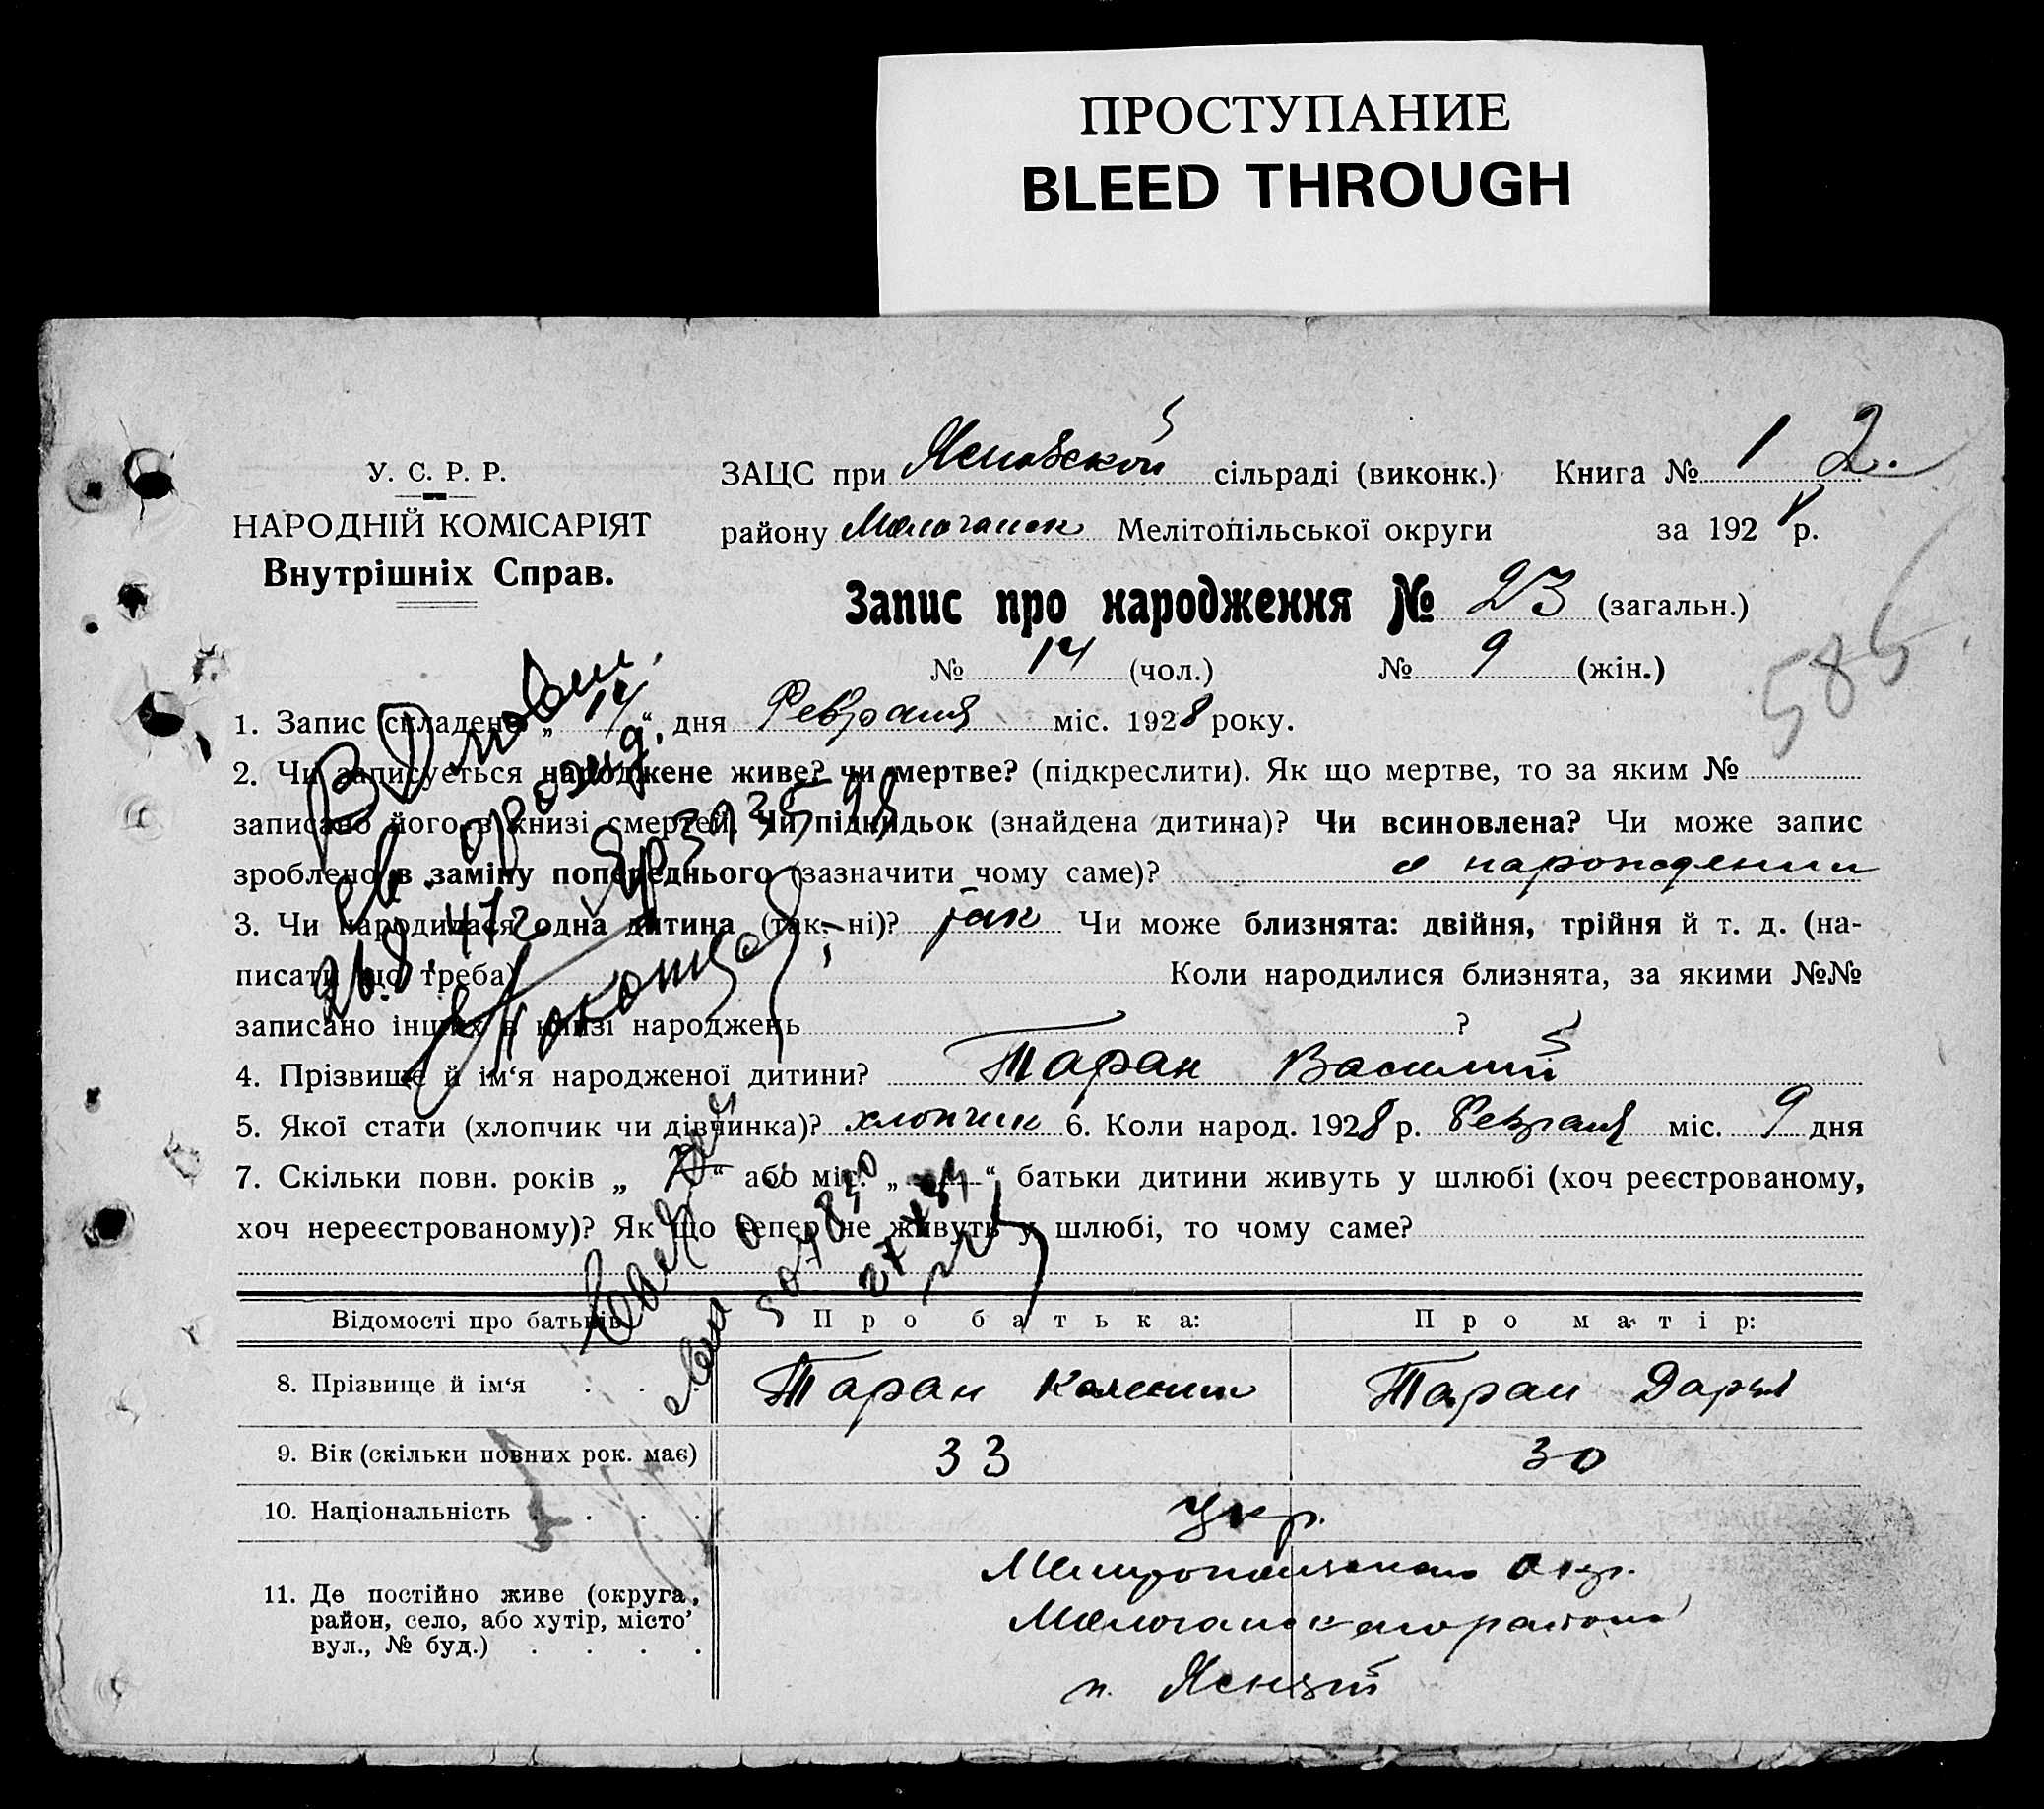 ПРОСТУПАНИЕ
BLEED THROUGH
У. С. Р. Р.
НАРОДНІЙ КОМІСАРІЯТ
Внутрішніх Справ.
ЗАЦС при Ясновской сільраді (виконк.) Книга № 1 2.
району Молочанск Мелітопільської округи за 1928 р.
Запис про народження № 23 (загальн.)
№ 14 (чол.) № 9 (жін.)
585
1. Запис складено „ 14 “ дня Февраля міс. 1928 року.
2. Чи записується народжене живе? чи мертве? (підкреслити). Як що мертве, то за яким №
записано його в книзі смертей. Чи підкидьок (знайдена дитина)? Чи всиновлена? Чи може запис
зроблено в заміну попереднього (зазначити чому саме)? о нарождении
3. Чи народилася одна дитина (так, ні)? так Чи може близнята: двійня, трійня й т. д. (на-
писати що треба) Коли народилися близнята, за якими №№
записано інших в книзі народжень ?
4. Прізвище й ім‘я народженої дитини? Таран Василий
5. Якої стати (хлопчик чи дівчинка)? хлопчик 6. Коли народ. 1928 р. Февраля міс. 9 дня
7. Скільки повн. років „ “ або міс. „ “ батьки дитини живуть у шлюбі (хоч реєстрованому,
хоч нереєстрованому)? Як що тепер не живуть у шлюбі, то чому саме?
Відомості про батьків Про батька: Про матір:
8. Прізвище й ім‘я . . . Таран Таран Дарья
9. Вік (скільки повних рок. має) 33 30
10. Національність . . . . Укр.
11. Де постійно живе (округа, район, село, або хутір, місто вул., № буд.) . . . .
Окр.
Молочанского района
п. Ясный